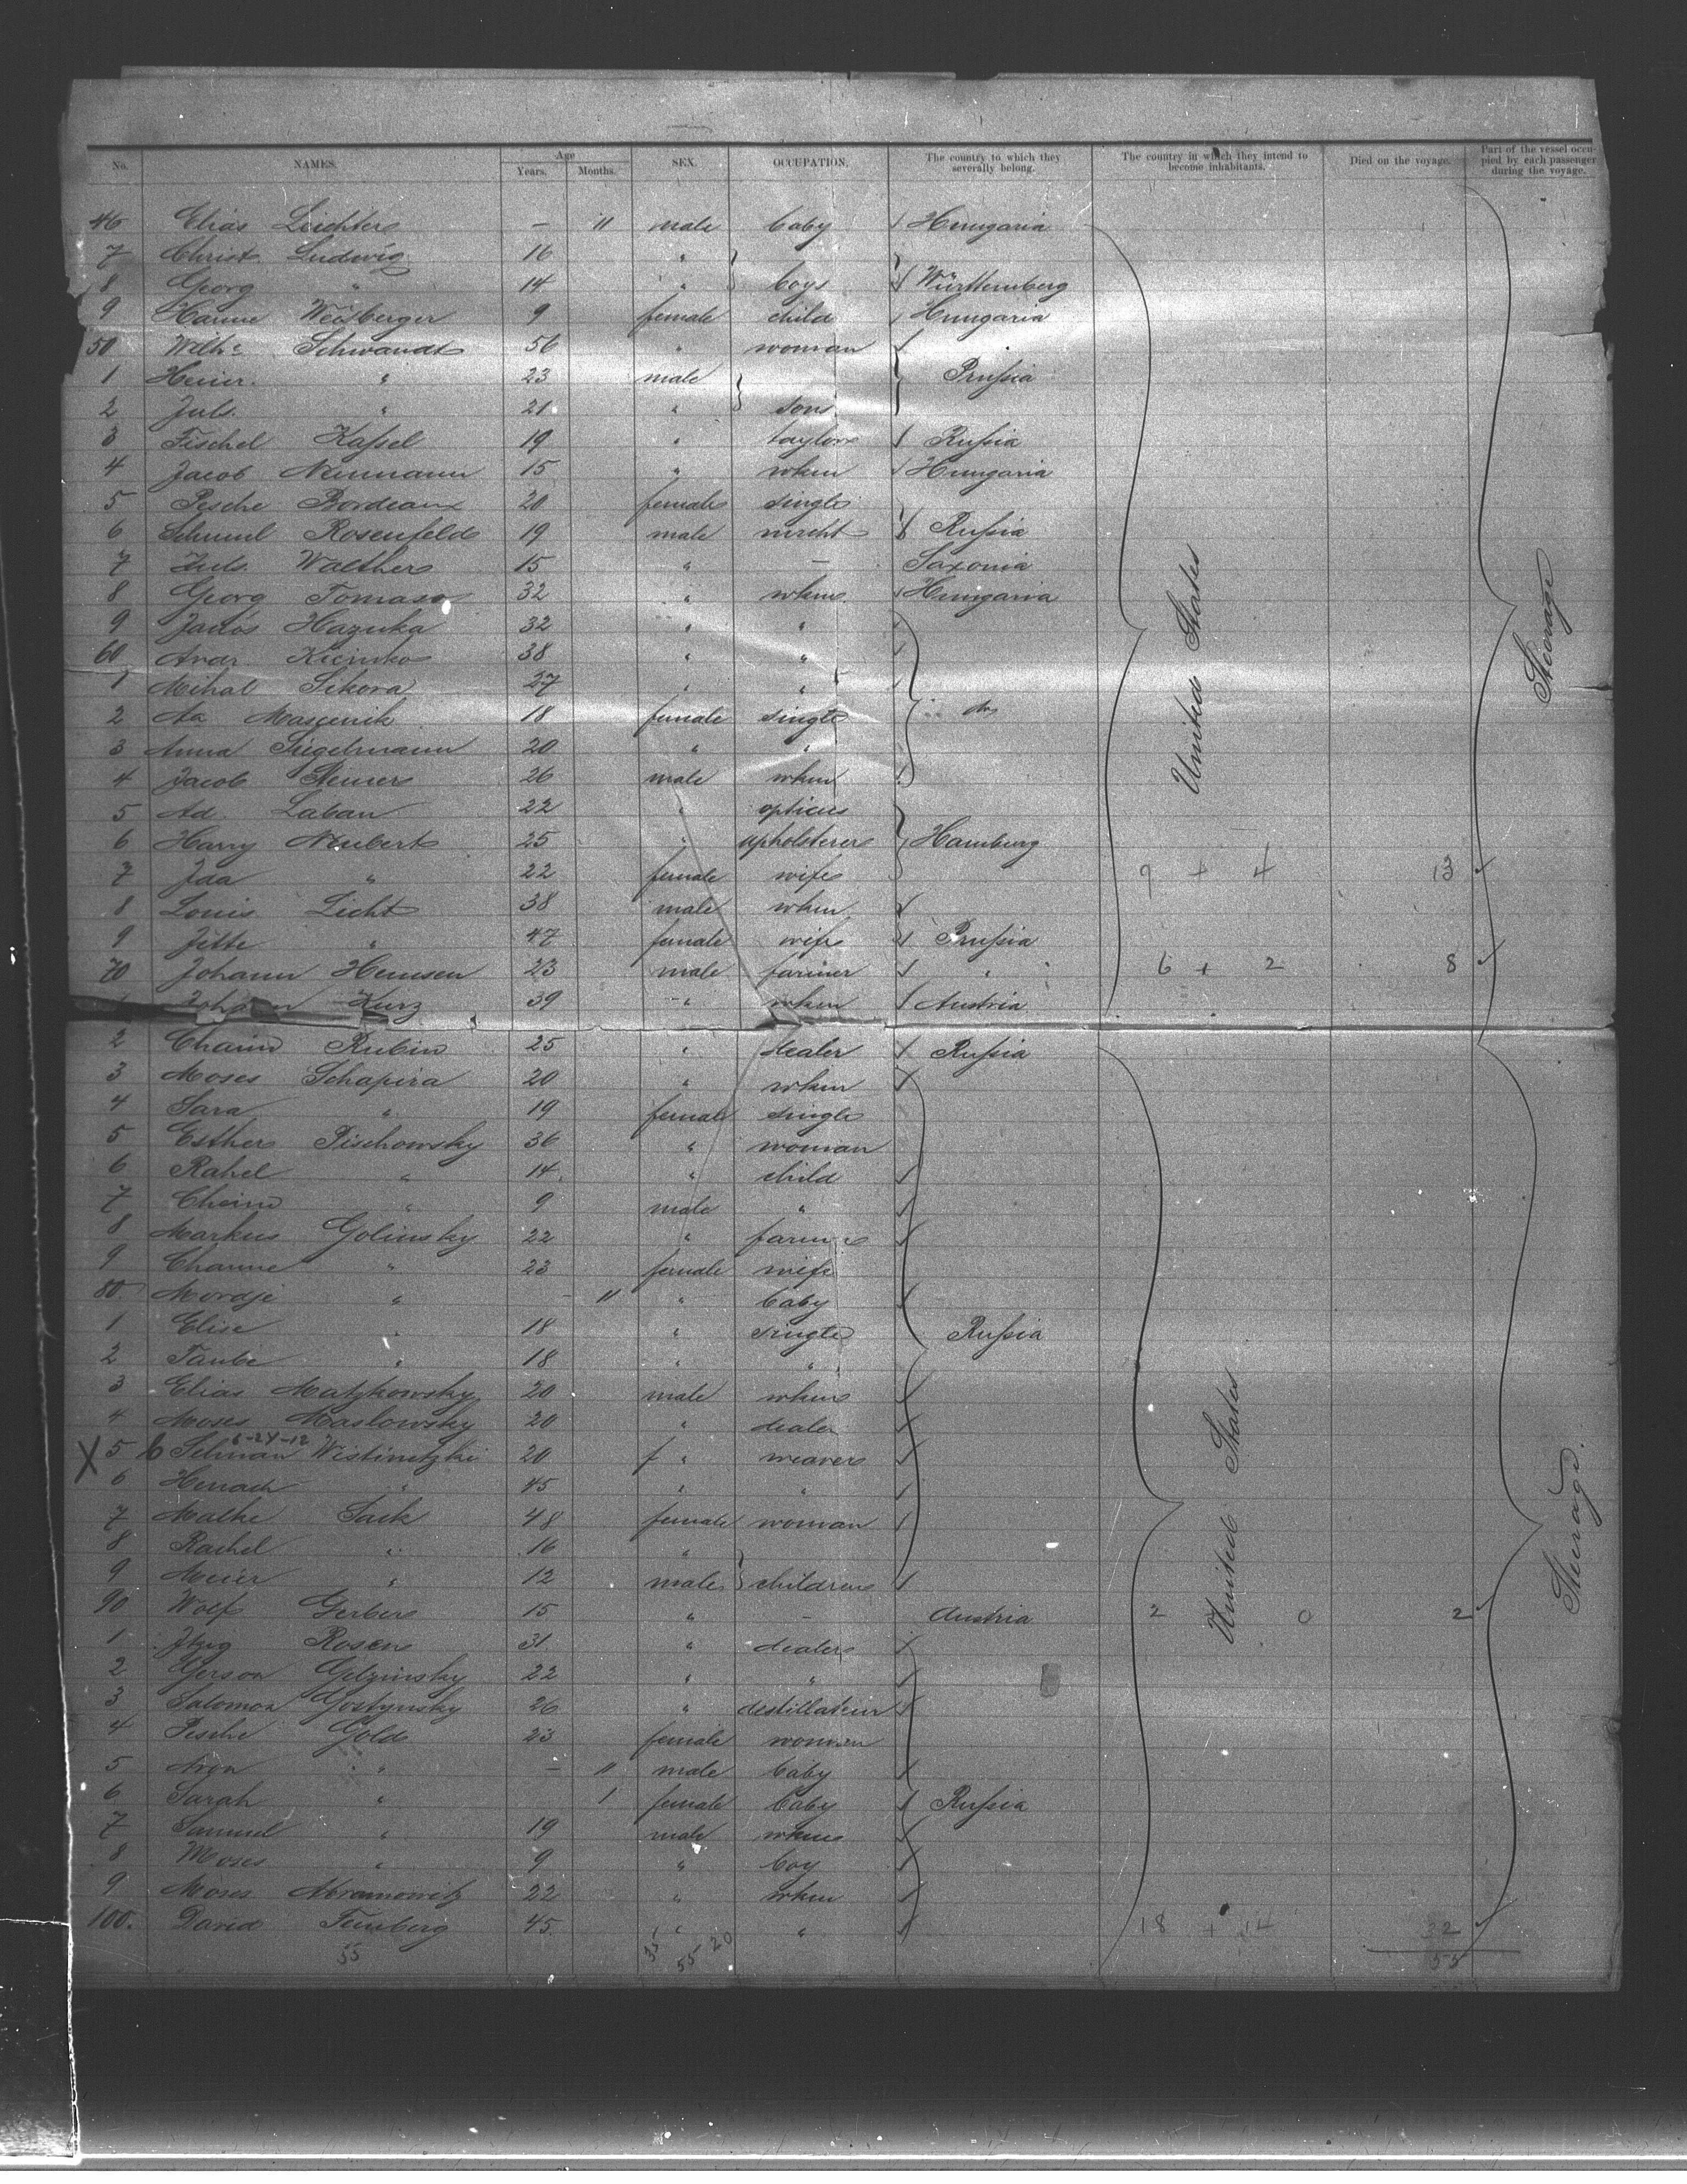 No. NAMES. Age Years. Months. SEX. OCCUPATION. The country to which they severally belong. The country in which they intend to become inhabitants. Died on the voyage. Part of the vessel occupied by each passenger during the voyage.
46 Elias Leichter — 11 male baby Hungaria
7 Christ. Ludwig 16 "
8 Georg " 14 " boys Württemberg
9 Hanne Weisberger 9 female child Hungaria
50 Wilhe Schwandt 56 " woman
1 Heinr. " 23 male Prussia
2 Juls. " 21 " sons
3 Fischel Kassel 19 " taylor Russia
4 Jacob Neumann 15 " wkm Hungaria
5 Pesche Bordeaux 20 female single
6 Schmul Rosenfeld 19 male mrcht Russia
7 Juls. Walther 15 " — Saxonia
8 Georg Tomaso 32 " wkm Hungaria
9 Hazuka 32 " "
60 Andr. 38 " "
1 Mihal Sikora 27 " "
2 18 female single do
3 Anna Siegelmann 20 " "
4 Jacob Steiner 26 male wkm
5 Ad. Laban 22 " opticus
6 Harry Neubert 25 " upholsterer Hamburg
7 Ida " 22 female wife 9 + 4 13
8 Louis Licht 38 male wkm
9 Jitte " 47 female wife Prussia
70 Johann Hemsen 23 male farmer " 6 + 2 8
1 Johann Kurz 39 " wkm Austria
United States
Steerage
2 Chaim Rubin 25 " dealer Russia
3 Moses Schapira 20 " wkm
4 Sara " 19 female single
5 Esther Pischowsky 36 " woman
6 Rahel " 14 " child
7 Cheim " 9 male "
8 Markus Golinsky 22 " farmer
9 Channe " 23 female wife
80 Mordje " — 11 " baby
1 Elise " 18 " single Russia
2 Taube " 18 " "
3 Elias Matzkowsky 20 male wkm
4 Moses Maslowsky 20 " dealer
6-24-12
X 5 Selman Wistinetzki 20 " weaver
6 " 45 " "
7 Malke Sack 48 female woman
8 Rachel " 16 "
9 Meier " 12 male children
90 Wolf Gerber 15 " — Austria 2 0 2
1 Itzig Rosen 31 " dealer
2 Gerson Gelzinsky 22 " "
3 Salomon Gostynsky 26 " destillateur
4 Pesche Gold 23 female woman
5 Aron " — 11 male baby
6 Sarah " 1 female baby Russia
7 Samuel " 19 male wkm
8 Moses " 9 " boy
9 Moses Abramowitz 22 " wkm
100. David Feinberg 45 " " 18 + 14 32
55 35 55 20 55
United States
Steerage.